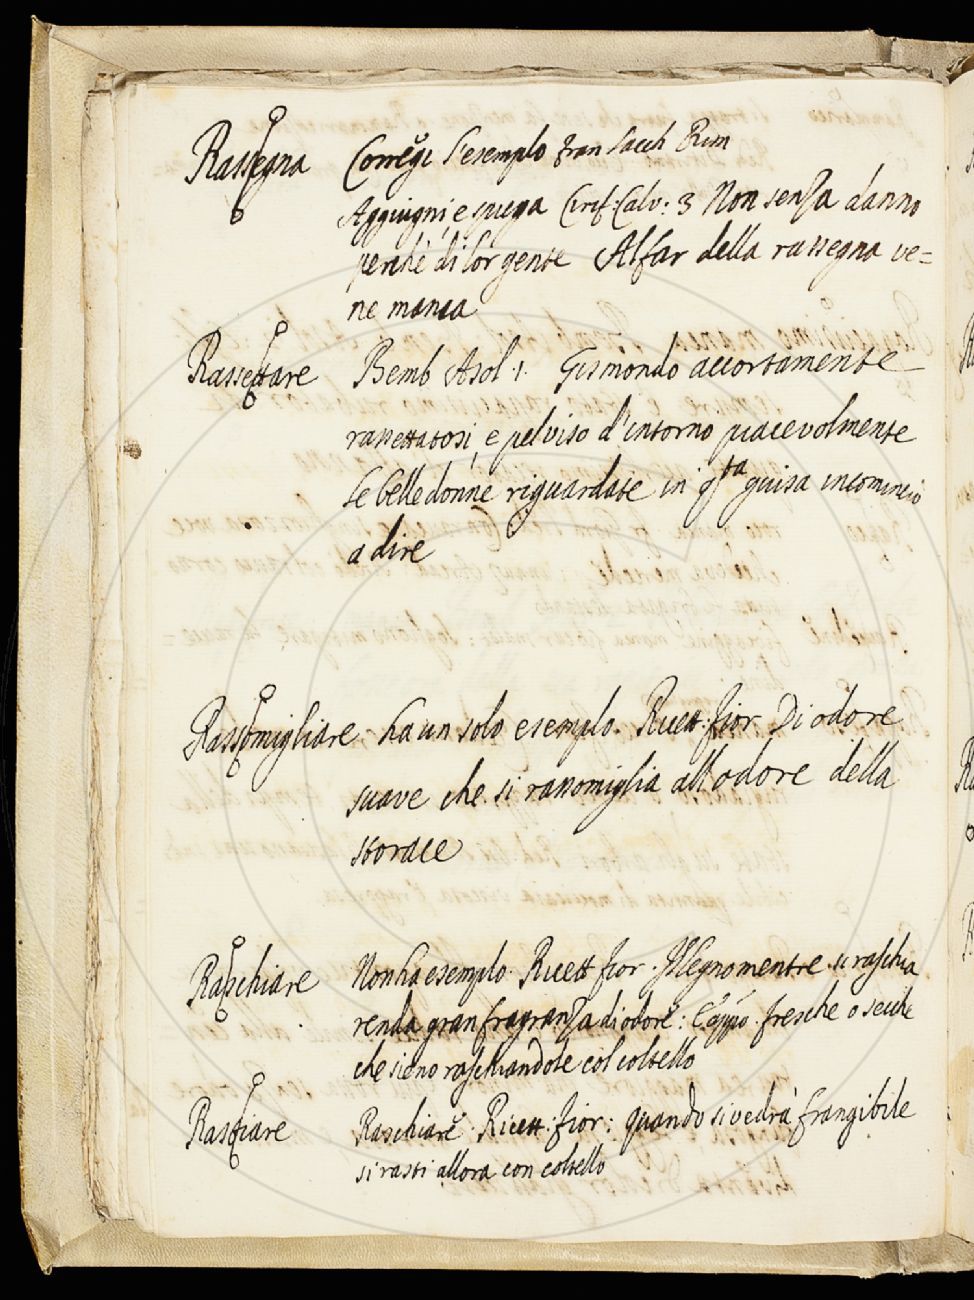 Rassegna Corregi l'esempio Fran Sacch Rim
Aggiugni, e spiega Cirif Calv: 3 Non senza danno
perchè di sorgente Alfar della rassegna ve=
ne manca
Rassettare Bemb Asol. 1. Gismondo accortamente
rassettatosi, e pel viso d'intorno piacevolmente
le belle donne riguardate in q.ta guisa incominciò
a dire
Rassomigliare ha un solo esempio. Ricett: fior Di odore
suave che si rassomiglia all odore della
storace
Raschiare Non ha esempio. Ricett fior. Il legno mentre si raschia
renda gran fragranza di odore: E appó. fresche o secche
che sieno raschiandole col coltello
Rastiare Raschiare. Ricett: fior: quando si vedrà frangibile
si rasti allora con coltello